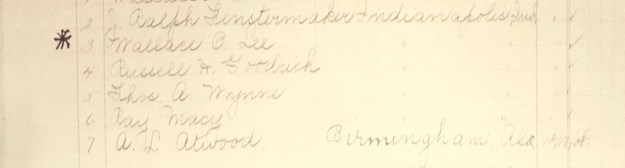 2 J. Ralph Fenstermaker Indianapolis Ind.
* 3 Wallace O. Lee "
4 Russell H. Goodrich " "
5 Thos. A. Wynne " "
6 Ray Macy " "
7 A. L. Atwood Birmingham Ala